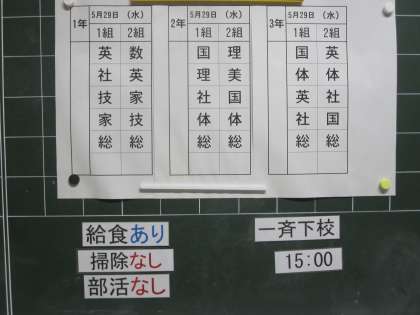 1年 5月29日 (水) 2年 5月29日 (水) 3年 5月29日 (水)
1組 2組 1組 2組 1組 2組
英 数 国 理 国 英
社 英 理 美 体 体
技 家 社 国 英 社
家 技 体 体 社 国
総 総 総 総 総 総
給食あり 一斉下校
掃除なし 15:00
部活なし